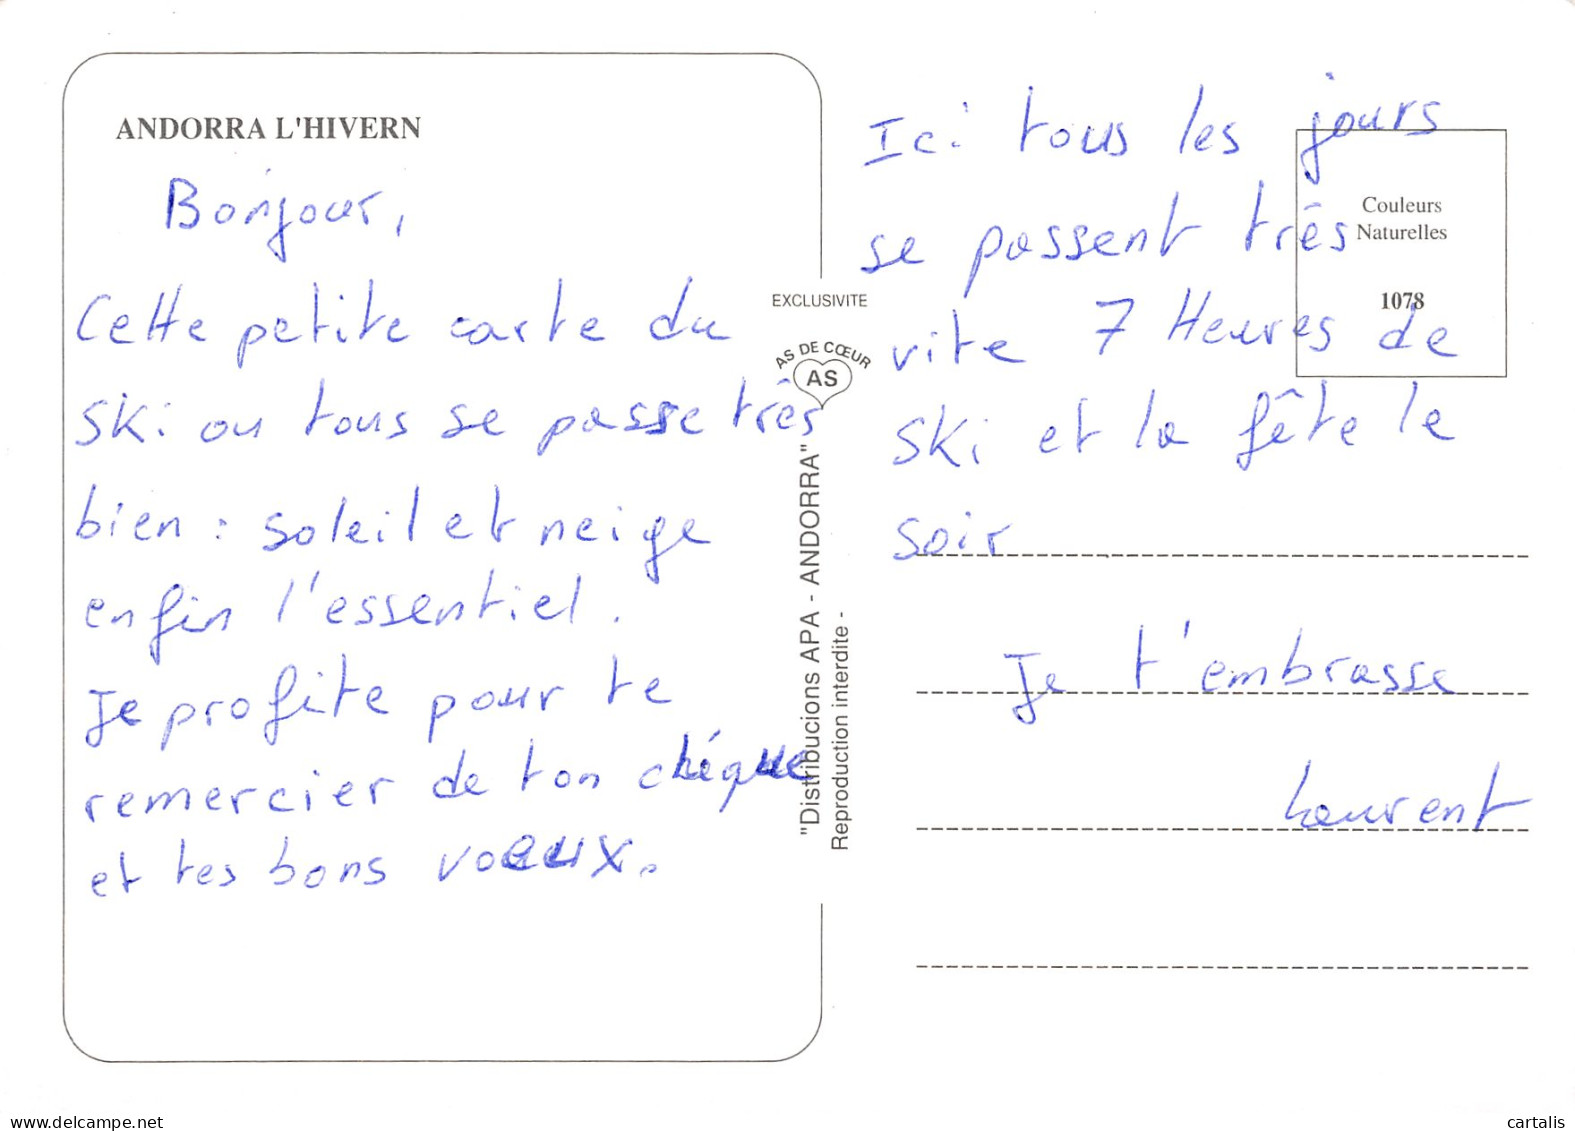 ANDORRA L'HIVERN
Bonjour,
Cette petite carte du
ski ou tous se passe très
bien : soleil et neige
enfin l'essentiel.
Je profite pour te
remercier de ton chèque
et tes bons voeux.
EXCLUSIVITE
AS DE CŒUR
AS
"Distribucions APA - ANDORRA"
Reproduction interdite -
Couleurs
Naturelles
1078
Ici tous les jours
se passent très
vite 7 Heures de
ski et la fête le
soir
Je t'embrasse
Laurent
delcampe.net
cartalis